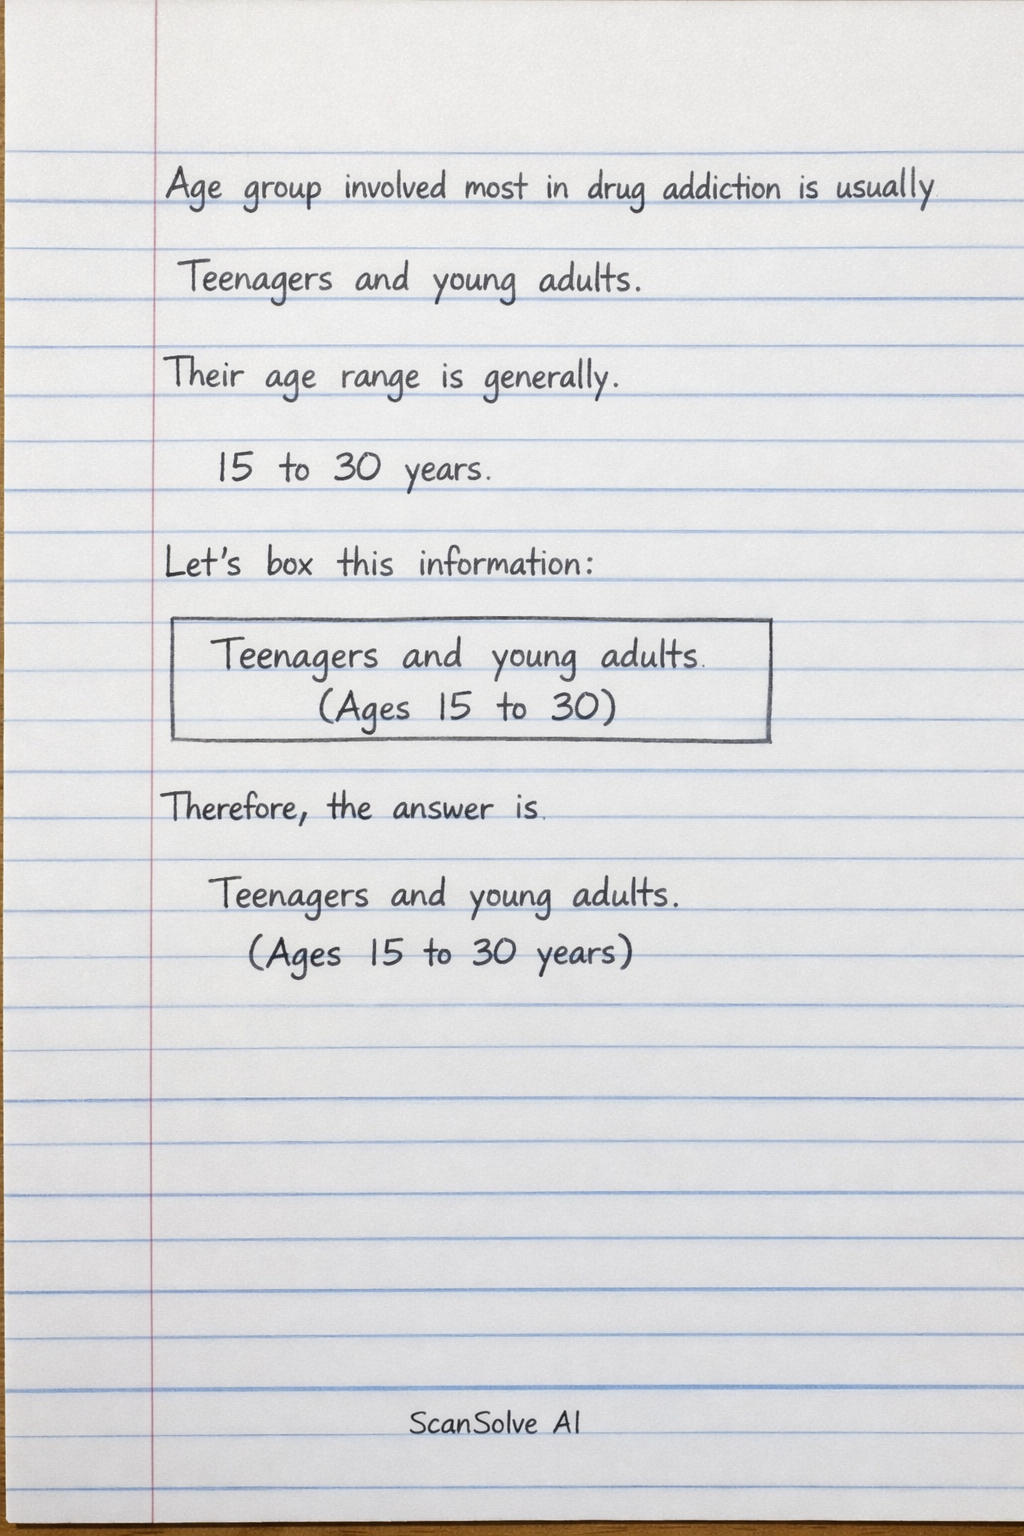 Age group involved most in drug addiction is usually
Teenagers and young adults.
Their age range is generally.
15 to 30 years.
Let's box this information:
Teenagers and young adults.
(Ages 15 to 30)
Therefore, the answer is.
Teenagers and young adults.
(Ages 15 to 30 years)
ScanSolve AI